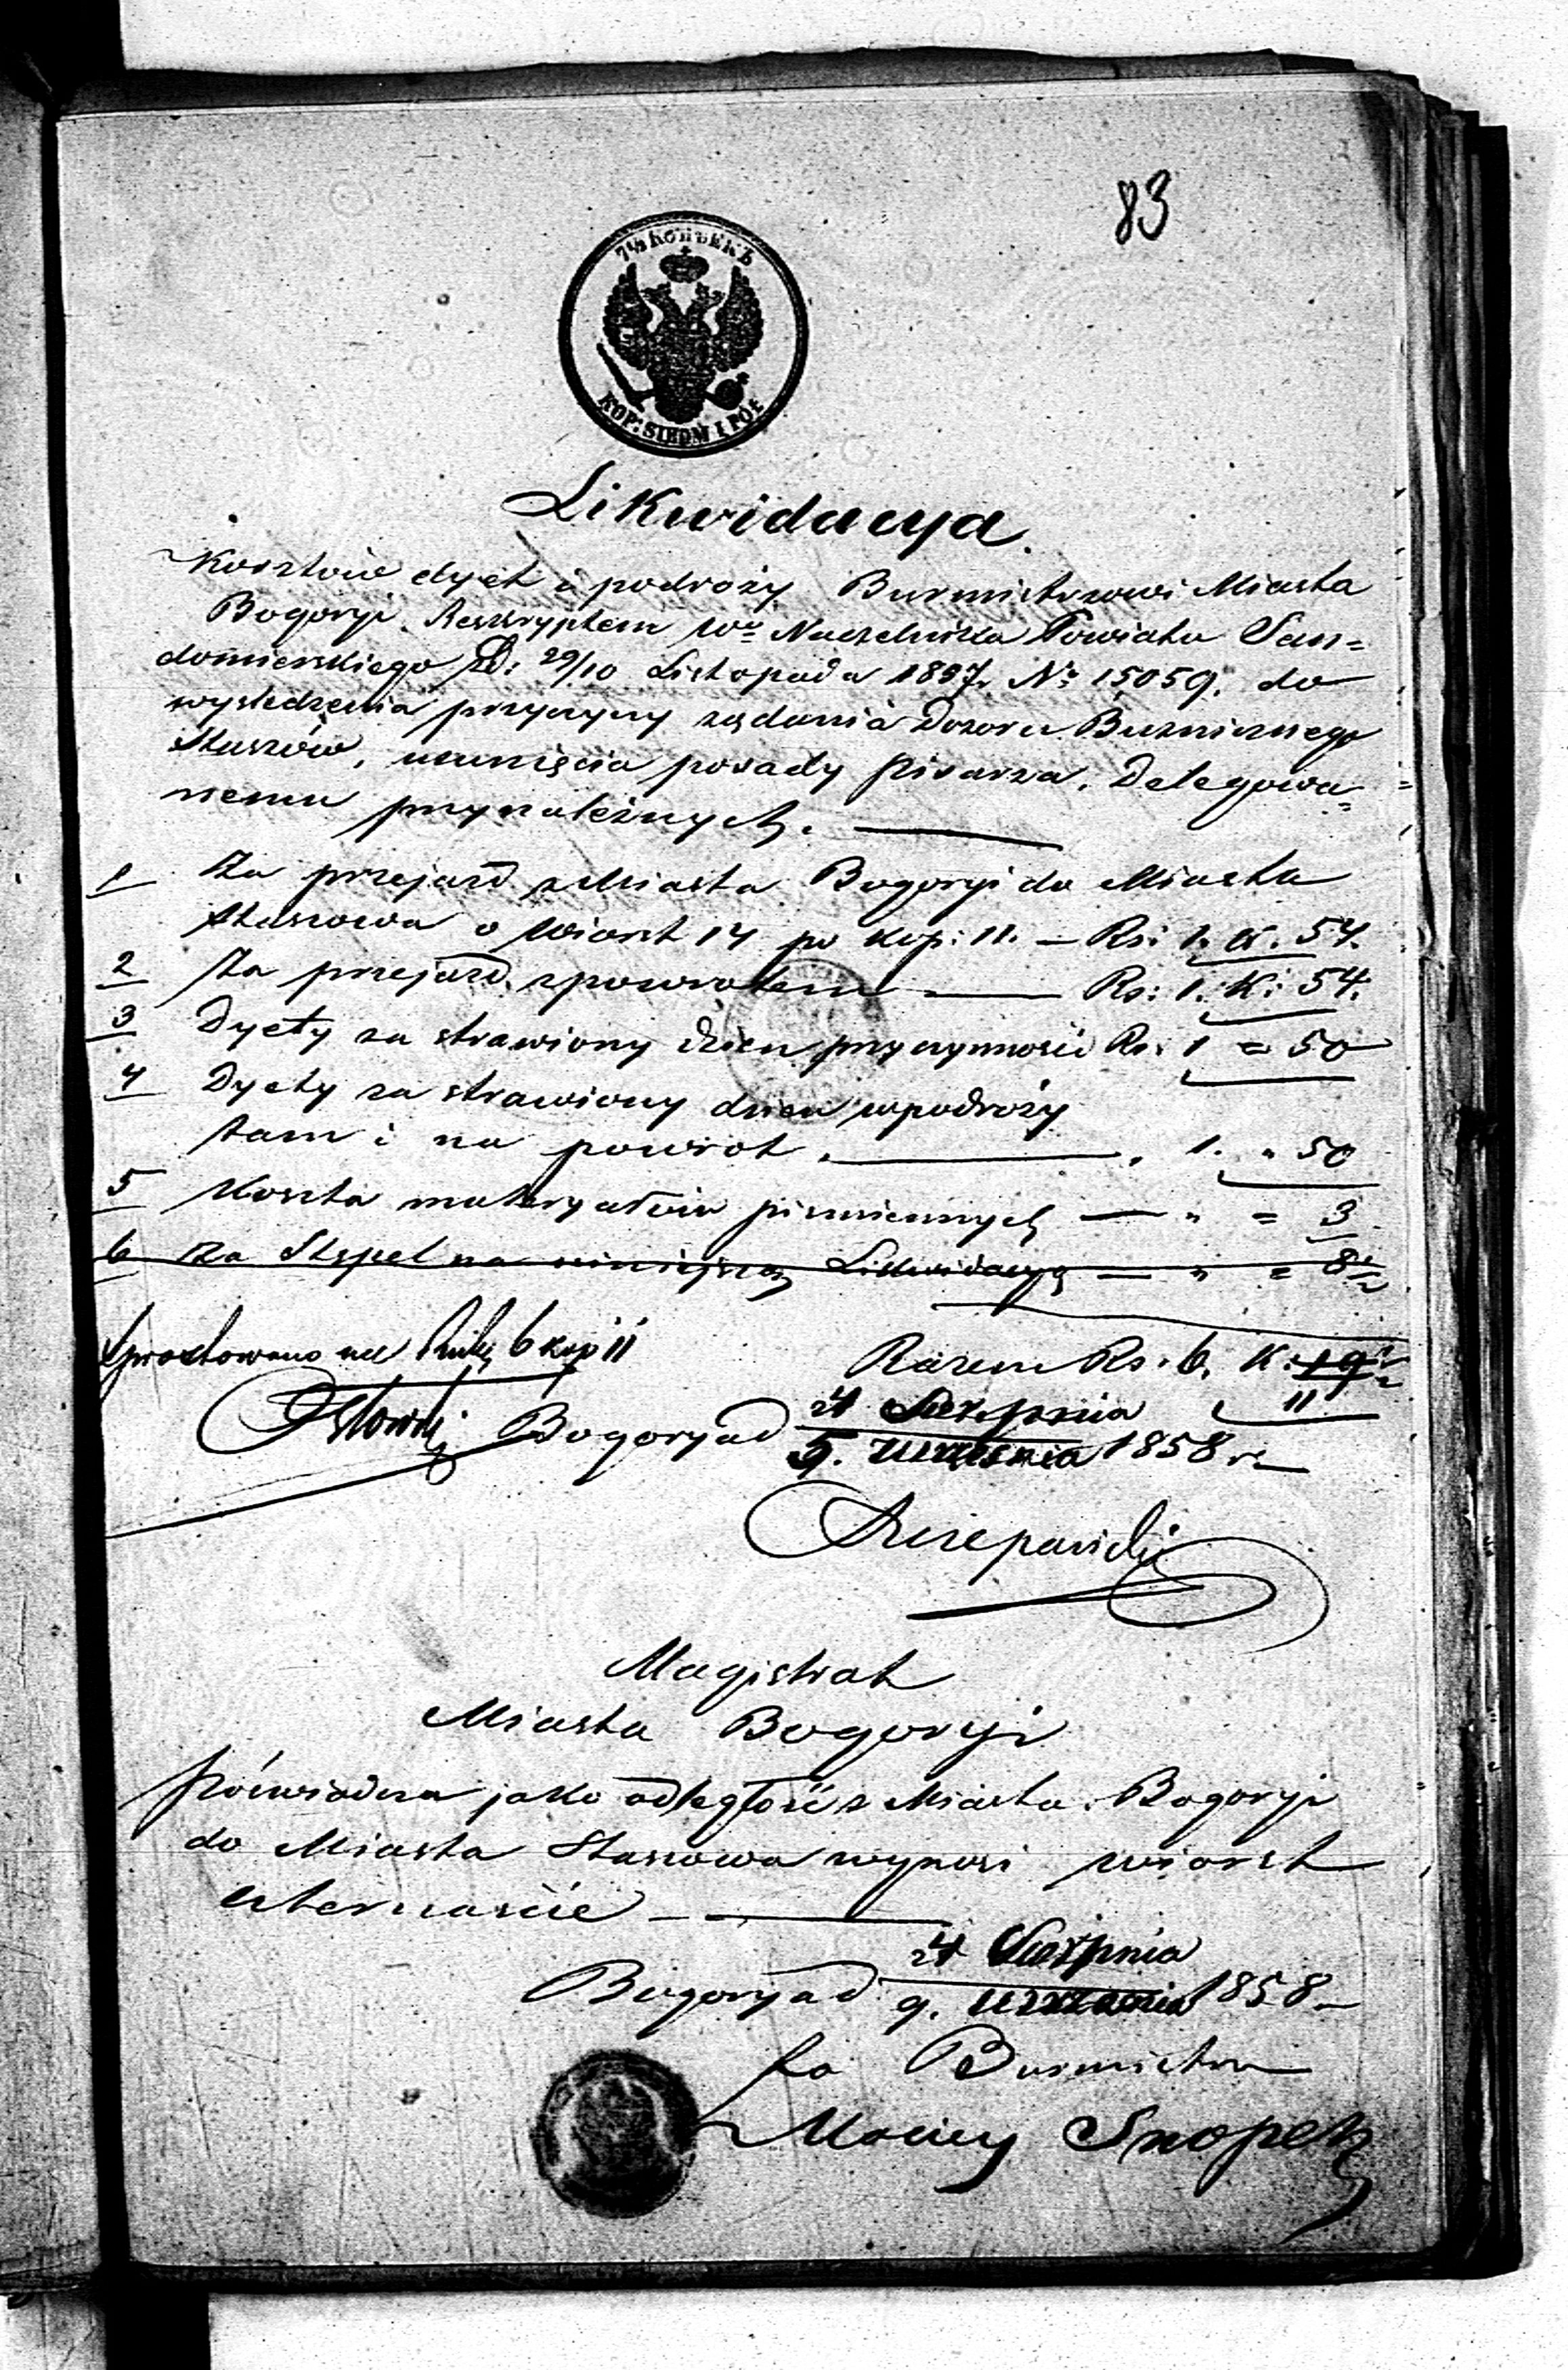 83
7½ КОПѢЕКЪ
KOP: SIEDM I PÓŁ
Likwidacya.
Kosztów dyet i podroży Burmistrzowi Miasta
Bogoryi, Reskryptem Wo Naczelnika Powiatu San=
domierskiego D: 29/10 Listopada 1857 r. No 15059. do
wyśledzenia przyczyny rządania Dozoru Buzniczego
Staszów, usunięcia posady Pisarza, Delegowa=
nemu przynależnych.
1 Za przejazd z Miasta Bogoryi do Miasta
Staszowa o Wiorst 14 po kop: 11. — Rs: 1. K. 54.
2 Za przejazd z powrotem — Rs: 1. K: 54.
3 Dyety za strawiony dzień przy czynności Rs. 1 = 50
4 Dyety za strawiony dzień w podroży
tam i na powrot. — „ 1. „ 50
5 Koszta materyałów pismiennych — „ = 3
6 Za Stępel na niniejszą Likwidacyą — „ = 8½
Sprostowano na Rubli 6 kop 11
Razem Rs. 6. K. 19½
11
Bogorya d 24 Sierpnia
5. Września 1858 r.
Magistrat
Miasta Bogoryi
Poświadcza jako odległość z Miasta Bogoryi
do Miasta Staszowa wynosi wiorst
czternaście —
Bogorya d 24 Sierpnia
9. Września 1858 —
za Burmistrza
Maciey Snopek